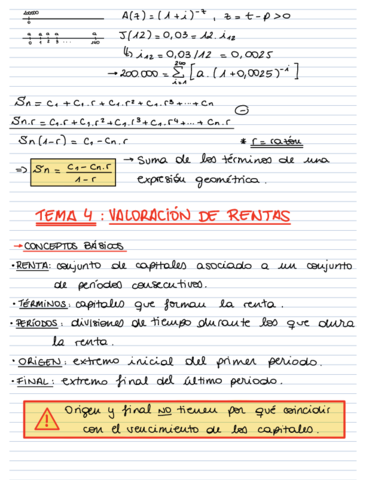 200000
A(z) = (1+i)^-z , z = t-p > 0
0
a a a a a
J(12) = 0,03 = 12. i12
0 1 2 3
↳ i12 = 0,03/12 = 0,0025
→ 200.000 = Σ [a. (1+0,0025)^-i]
i=1
Sn = C1 + C1.r + C1.r² + C1.r³ + ... + Cn
Sn.r = C1.r + C1.r² + C1.r³ + C1.r⁴ + ... + Cn.r
Sn(1-r) = C1 - Cn.r * r = razón
⇒ Sn = C1 - Cn.r / 1-r → Suma de los términos de una
expresión geométrica.
TEMA 4 : VALORACIÓN DE RENTAS
→ CONCEPTOS BÁSICOS
· RENTA: conjunto de capitales asociado a un conjunto
de períodos consecutivos.
· TÉRMINOS: capitales que forman la renta.
· PERÍODOS: divisiones de tiempo durante los que dura
la renta.
· ORIGEN: extremo inicial del primer periodo.
· FINAL: extremo final del último periodo.
! Origen y final NO tienen por qué coincidir
con el vencimiento de los capitales.